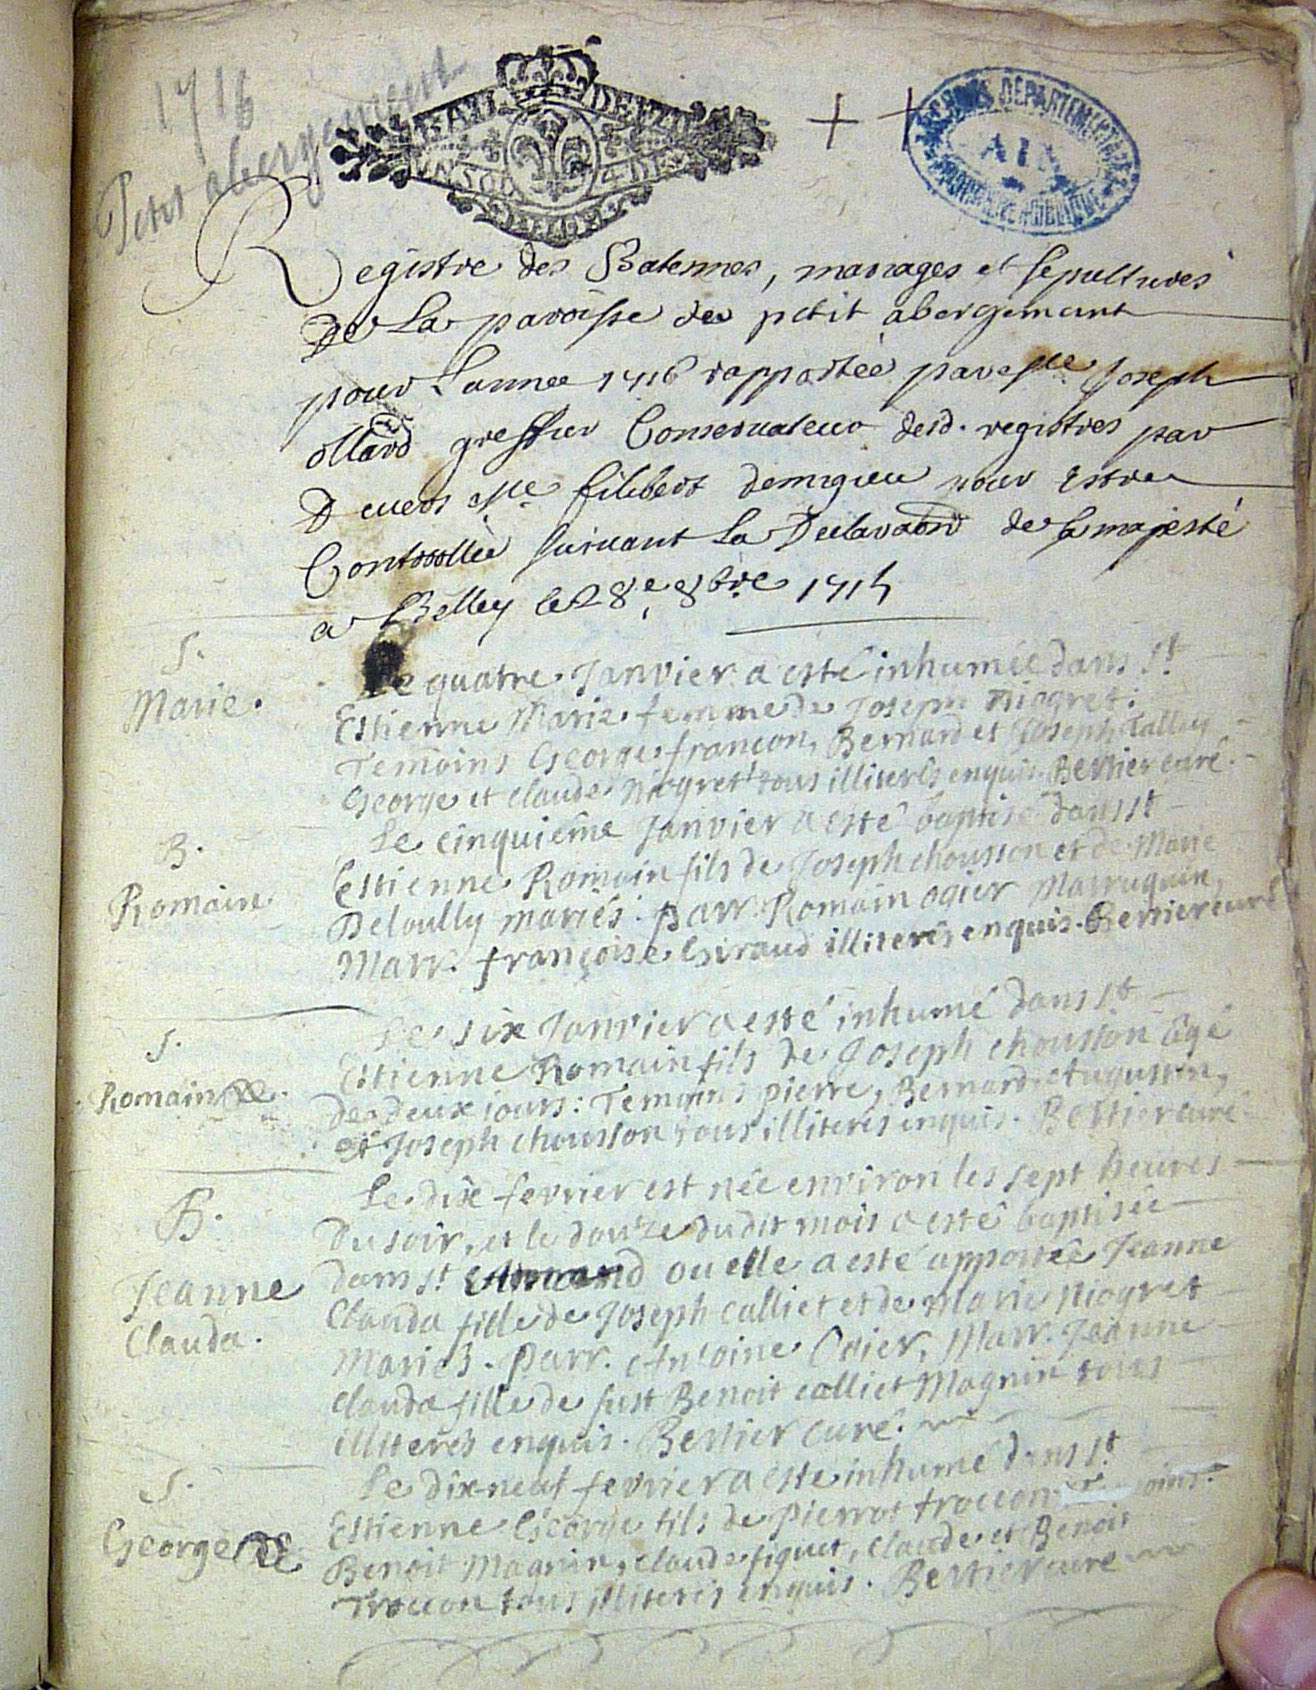 1716
Petit abergement
ARCHIVES DEPARTEMENTALES
AIN
Registre des Batesmes, mariages et sepultures
De La paroisse du petit abergement
pour Lannee 1716 rapportée par Me Joseph
ollard greffier Conservateur desd. registres par
Devers Me filibert demigieu pour Estre
Controollée suivant La Declaraon de sa majesté
a Belley le 28e 8bre 1715
S.
Marie.
Le quatre Janvier a esté inhumée dans St
Estienne Marie femme de Joseph Niogret.
Temoins George françon, Bernard et Joseph Calley
George et Claude Niogret tous illiterés enquis. Bertier curé.
B.
Romain
Le cinquiême Janvier a esté baptisé dans St
Estienne Romain fils de Joseph chousson et de Marie
Deloully mariés. parr. Romain ogier
Marr. françoise Giraud illiterés enquis. Bertier curé
S.
Romain
Le six Janvier a esté inhumé dans St
Estienne Romain fils de Joseph chousson âgé
de deux jours: Temoins pierre, Bernard, et
et Joseph chousson tous illiterés enquis. Bertier curé
B.
Jeanne
Clauda.
Le dix fevrier est née environ les sept heures
Du soir, et le douze dudit mois a esté baptisée
dans St ou elle a esté apportée Jeanne
Clauda fille de Joseph calliet et de Marie Niogret
Mariés. Parr. Antoine Odier, Marr. Jeanne
clauda fille de fust Benoit calliet Magnin tous
illiterés enquis. Bertier curé.
S.
George
Le dix-neuf fevrier a esté inhumé dans St
Estienne George fils de Pierrot troccon
Benoit Magnin, claude fiquet, claude et Benoit
Troccon tous illiterés enquis. Bertier curé